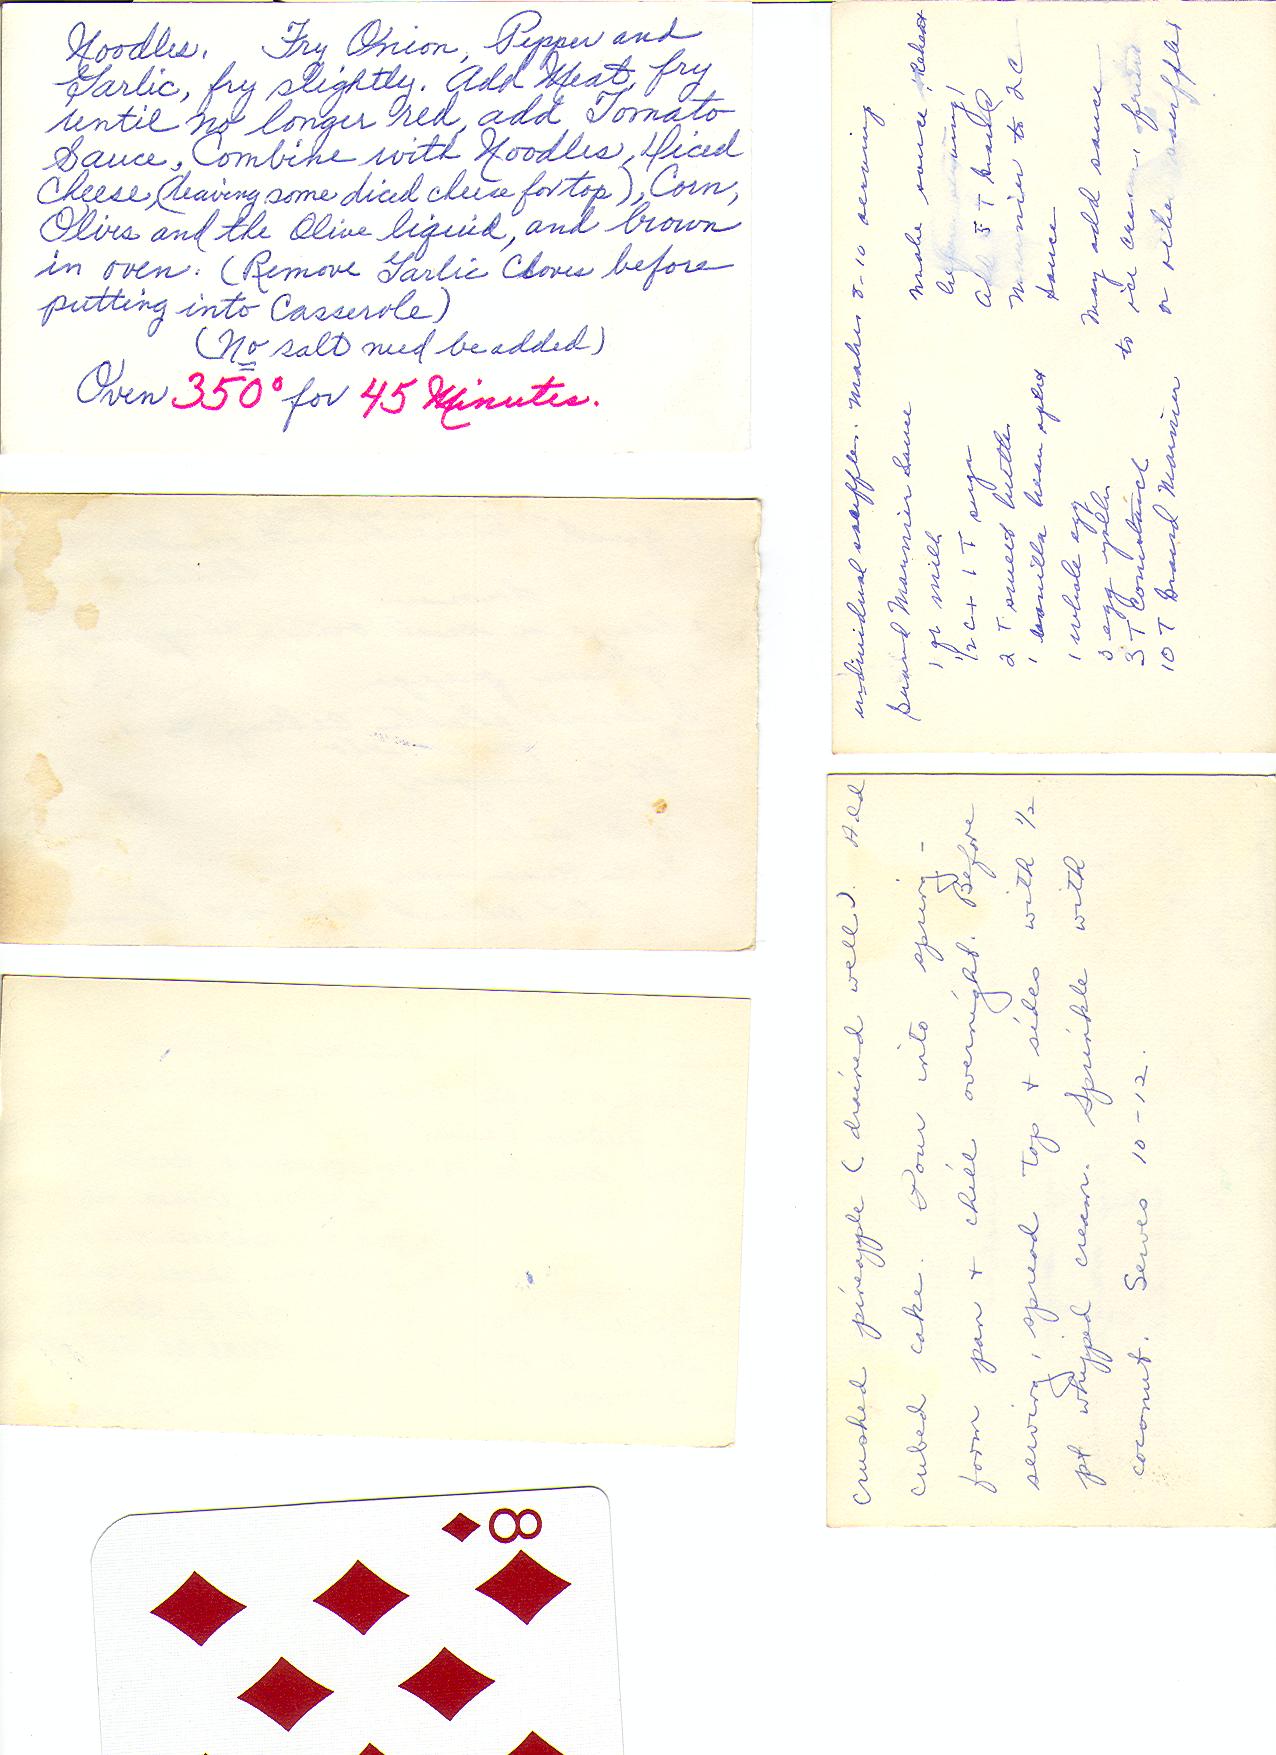 Noodles. Fry Onion, Pepper and
Garlic, fry slightly. Add Meat, fry
until no longer red, add Tomato
Sauce, Combine with Noodles, Diced
Cheese, (leaving some diced cheese for top), Corn,
Olives and the Olive liquid, and brown
in oven. (Remove Garlic Cloves before
putting into Casserole)
(No salt need be added)
Oven 350° for 45 Minutes.
individual souffles. Makes 8-10 serving
Grand Marnier Sauce
1 qt milk
1/2 C + 1 T suga
2 T sweet butter
1 vanilla bean split
1 whole egg
3 egg yolks
3 T Cornstarch
10 T Grand Marnier
make sauce, Reheat
before serving!
add 5 T
Marnier to 2 C
sauce
May add sauce
to ice cream
or other souffles
crushed pineapple (drained well). Add
cubed cake. Pour into spring-
form pan + chill overnight. Before
serving, spread top + sides with 1/2
pt whipped cream. Sprinkle with
coconut. Serves 10-12.
8